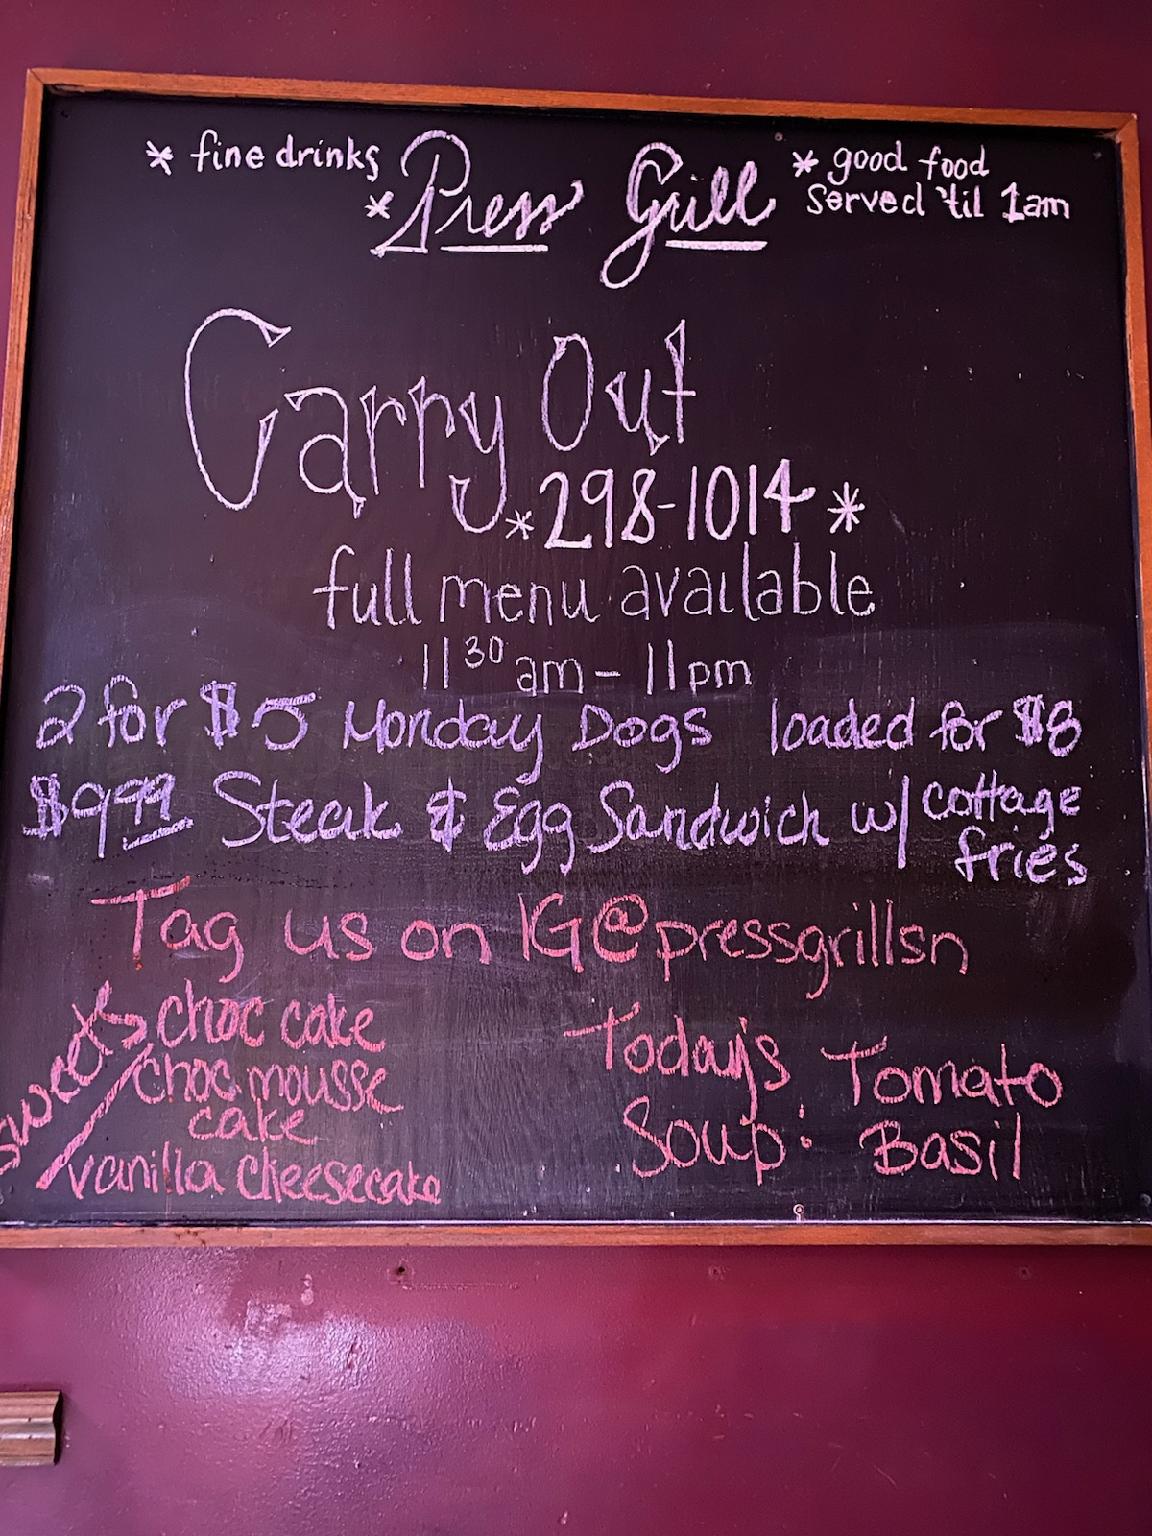 * fine drinks * Press Grill * good food
served 'til 1am
Carry Out
*298-1014*
full menu available
11 30 am - 11 pm
2 for $5 Monday Dogs loaded for $8
$9.99 Steak & Egg Sandwich w/ cottage
fries
Tag us on IG@pressgrillsn
sweets
choc cake
choc mousse
cake
vanilla cheesecake
Today's
Soup:
Tomato
Basil